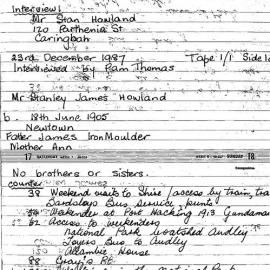 Interview 1
Mr Stan Howland
120 Parthenia St
Caringbah
23rd December 1987. Tape 1/1 Side 1
Interviewed by Pam Thomas
Mr Stanley James Howland
b. 18th June 1905
Newtown
Father James Iron Moulder
Mother Ann
17 SATURDAY SUNDAY 18
No brothers or sisters.
counter
38 Weekend visits to Shire / access by train, tram
Bardsleys Bus service, punts
54 Weekender at Port Hacking 1913 Gundamai
62 Access to weekenders
National Park boatshed Audley
Toyers Bus to Audley
150 Allambie House
88 Gray's Pt.